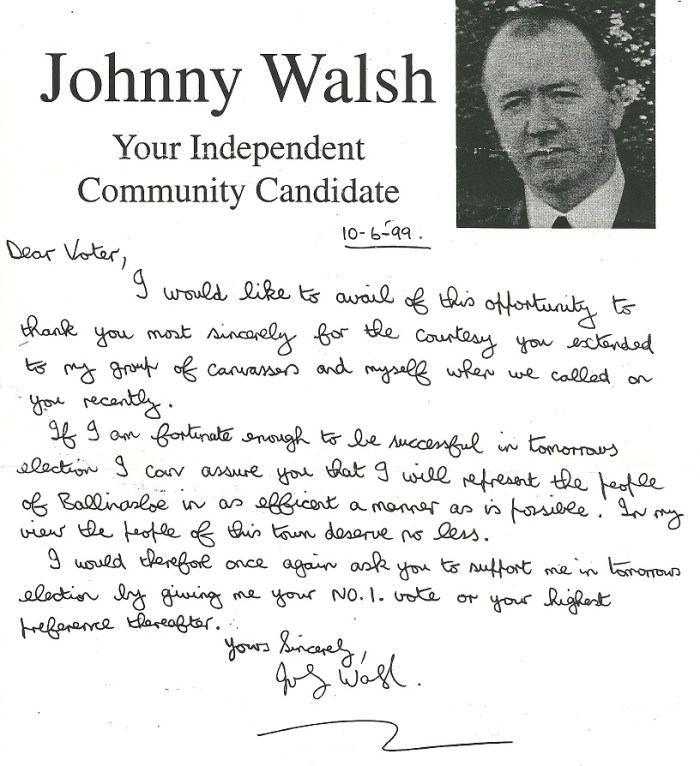 Johnny Walsh
Your Independent
Community Candidate
10-6-99.
Dear Voter,
I would like to avail of this opportunity to
thank you most sincerely for the courtesy you extended
to my group of canvassers and myself when we called on
you recently.
If I am fortunate enough to be successful in tomorrows
election I can assure you that I will represent the people
of Ballinasloe in as efficent a manner as is possible. In my
view the people of this town deserve no less.
I would therefore once again ask you to support me in tomorrows
election by giving me your NO.1. vote or your highest
preference thereafter.
Yours Sincerely,
Walsh.